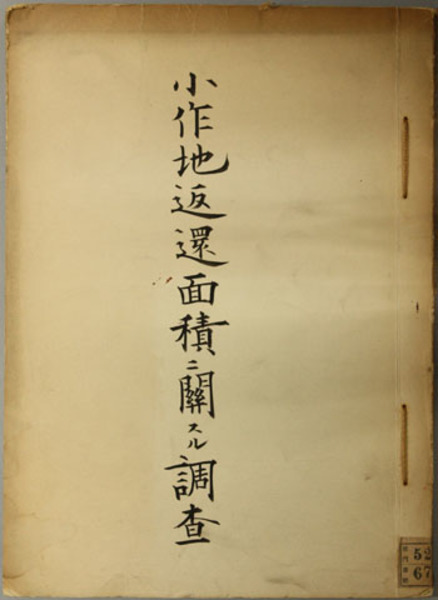 小作地返還面積ニ關スル調査
52
67